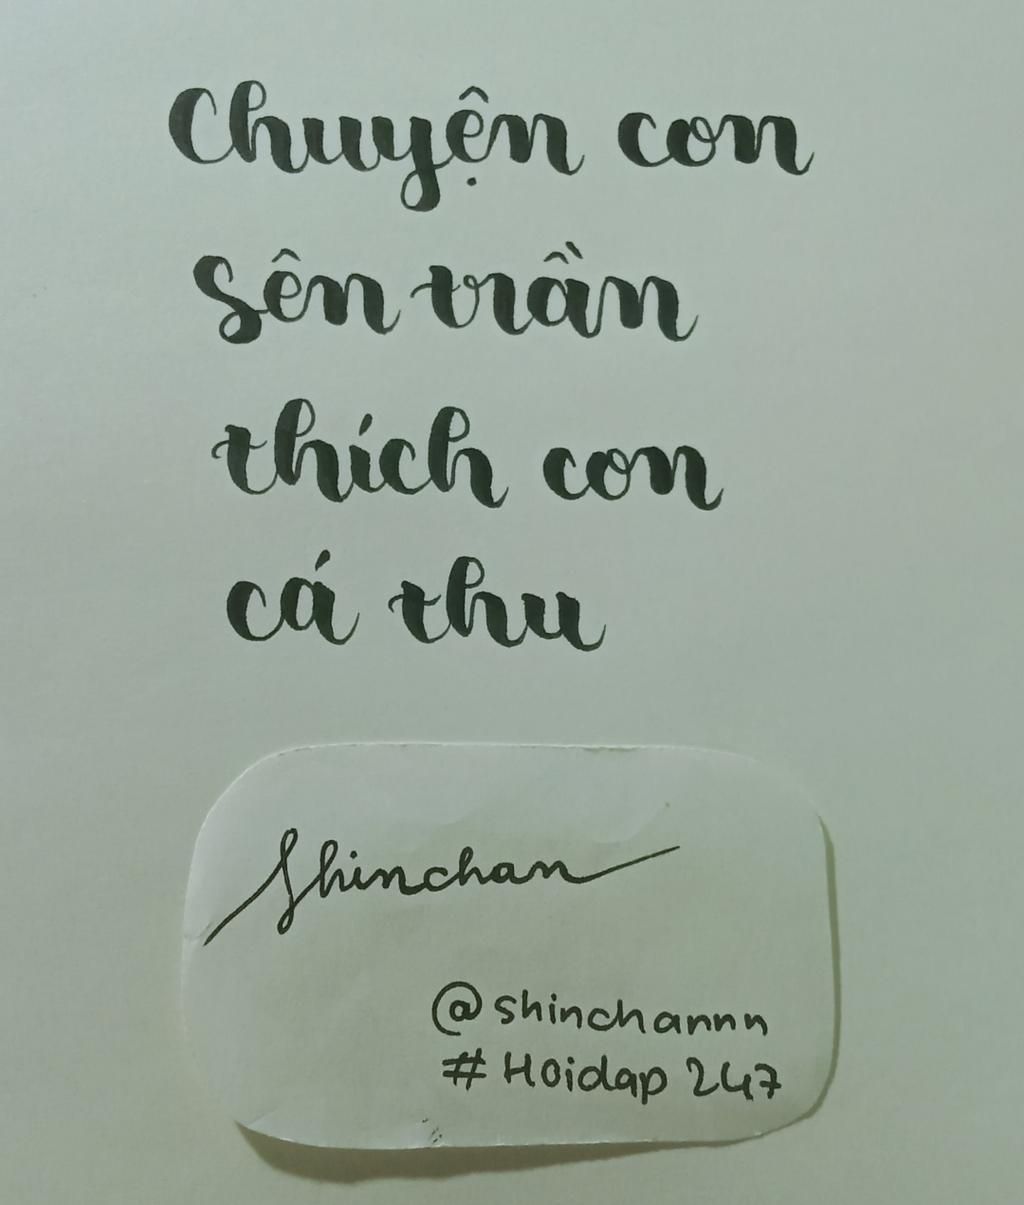 Chuyện con
sên trần
thích con
cá thu
Shinchan
@shinchannn
#Hoidap 247